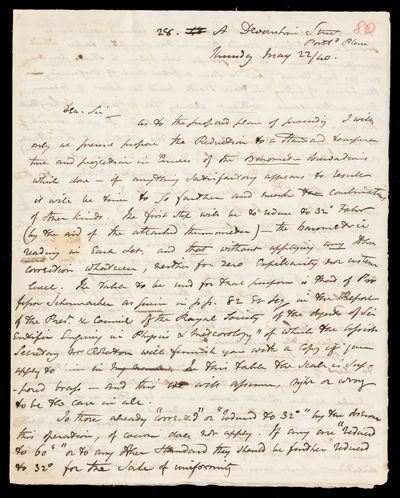 28. A Devonshire Street 80
Portl^d Place
Thursday May 22/40.
Dear Sir
As to the proposed plan of proceeding I will
only at present propose the Reduction to a standard tempera
ture and projection in Curves of the Barometer Fluctuations
which done - if anything satisfactory appears to result
it will be time to go farther and seek the combination
of other kinds. The first step will be to reduce to 32° Fahr
(by the aid of the attached thermometer) - the Barometric
reading in Each Set, and that without applying any other
correction whatsoever, neither for zero Capillarity nor cistern
level. The Table to be used for that purpose is that of Pro
fessor Schumacher as given in p.p. 82 to 89 in the "Report
of the Pres^t & Council of the Royal Society of the objects of Sci
entific Enquiry in Physics & Meteorology" of which the Assist
Secretary Mr Roberton will furnish you with a Copy if you
apply to him in my name. In this Table the Scale is Sup
-posed brass - and this we will assume, right or wrong
to be the case in all.
To those already "corrected" or "reduced to 32°" by the observer
this operation, of course does not apply. If any are "reduced
to 60°" or to any other Standard they should be further reduced
to 32° for the sake of uniformity